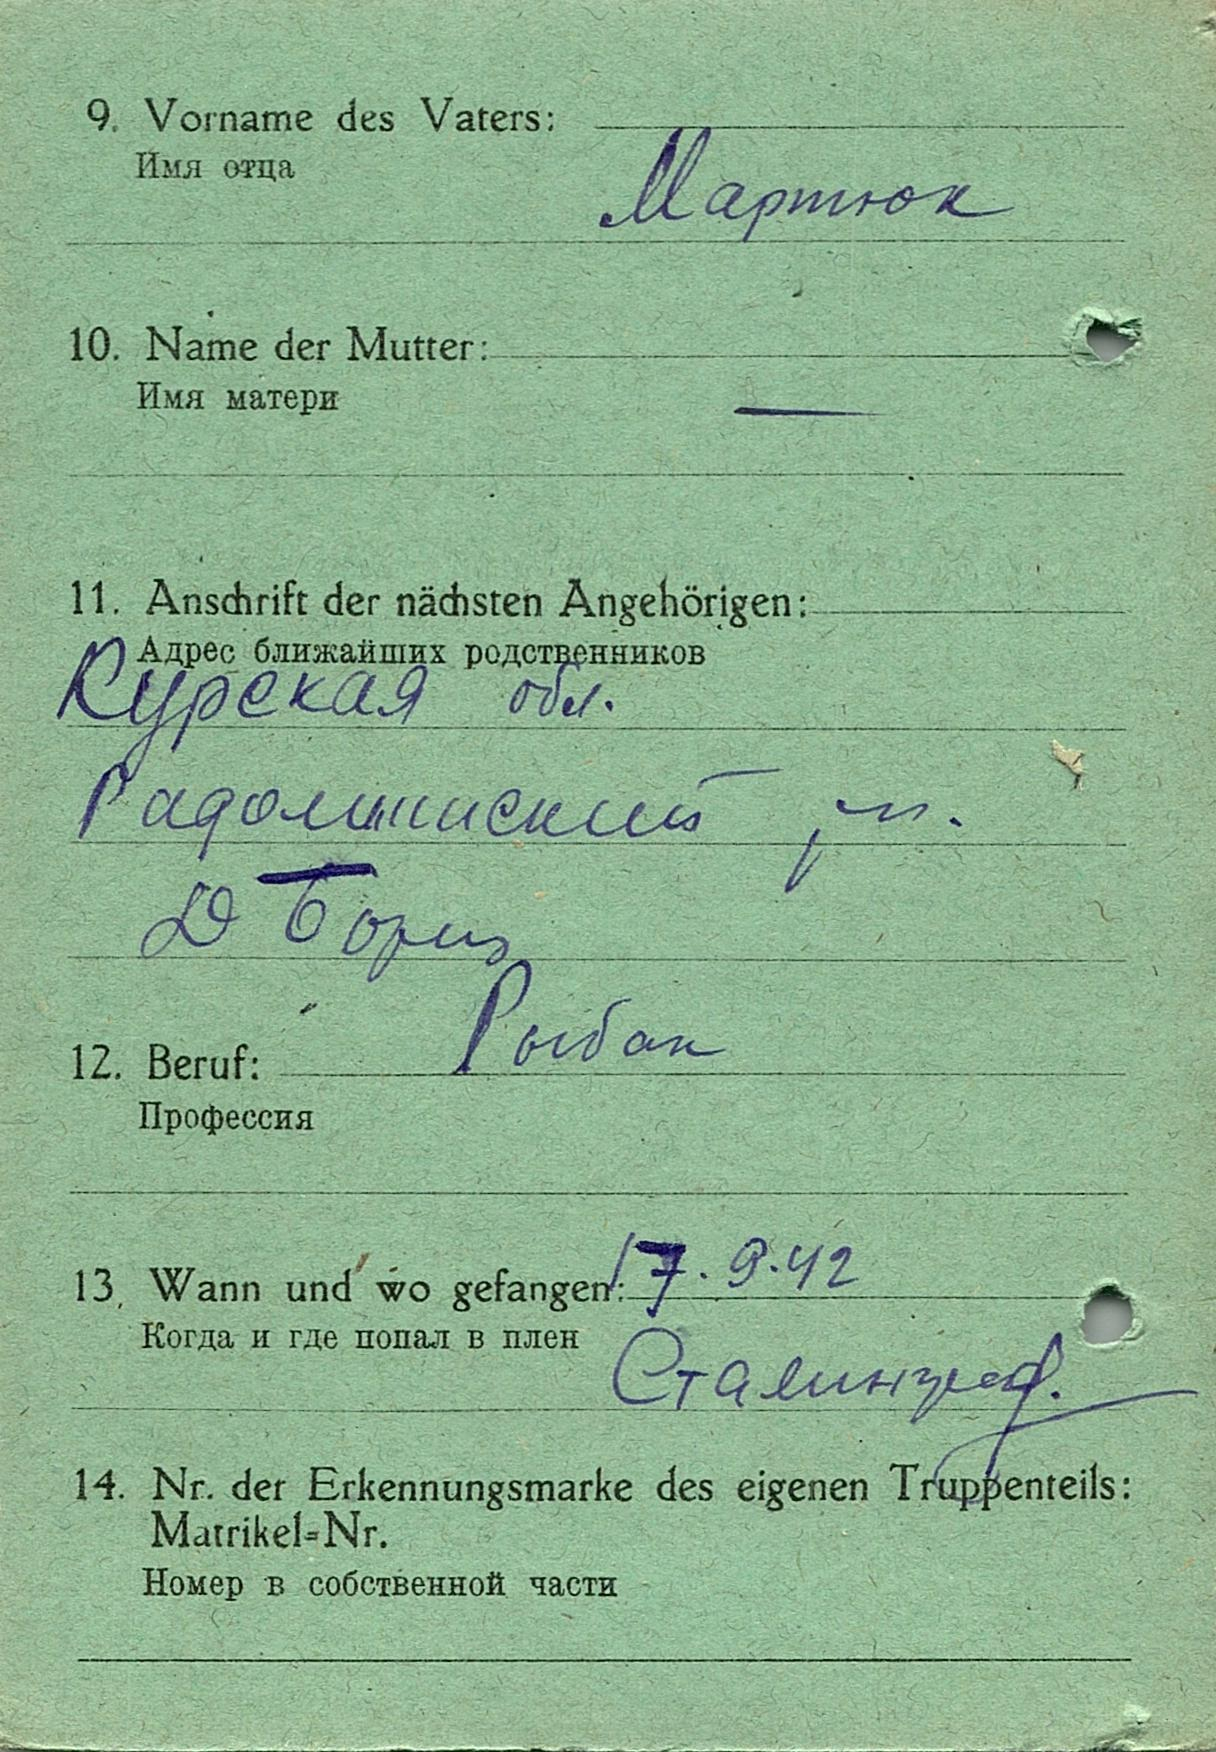 9. Vorname des Vaters:
Имя отца
Мартюк
10. Name der Mutter:
Имя матери
—
11. Anschrift der nächsten Angehörigen:
Адрес ближайших родственников
Курская обл.
р-н.
Д
12. Beruf: Рыбак
Профессия
13. Wann und wo gefangen: 17.9.42
Когда и где попал в плен
Сталинград.
14. Nr. der Erkennungsmarke des eigenen Truppenteils:
Matrikel=Nr.
Номер в собственной части